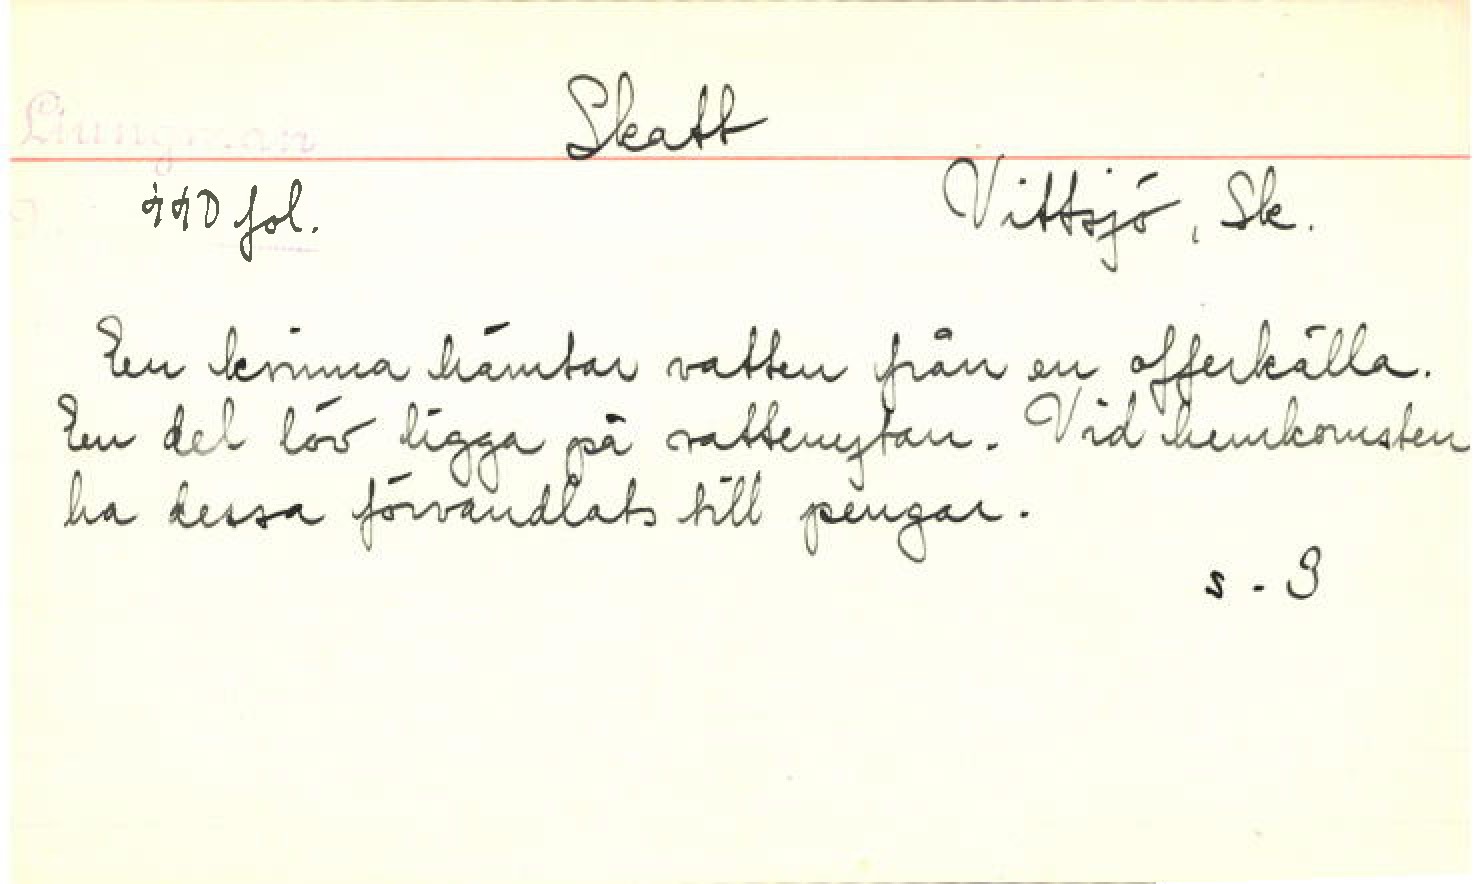 Ljungman
Skatt
Vittsjö, Sk.
fol.
En kvinna hämtar vatten från en offerkälla.
En del löv ligga på vattenytan. Vid hemkomsten
ha dessa förvandlats till pengar.
s. 9